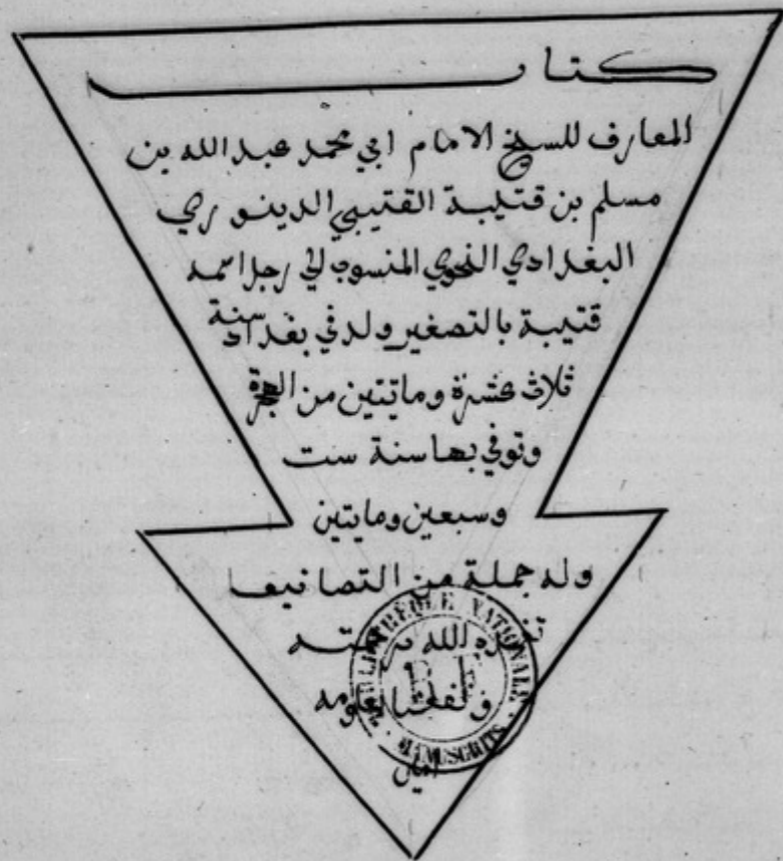 كتاب
المعارف للسيخ الامام ابي محمد عبد الله بن
مسلم بن قتيبة القتيبي الدينوري
البغدادي النحوي المنسوب الي رجل اسمه
قتيبة بالتصغير ولد في بغداد سنة
ثلاث عشرة ومايتين من الهجرة
وتوفي بها سنة ست
وسبعين ومايتين
وله جملة من التصانيف
تغمده الله برحمته
ونفعنا بعلومه
امين
BIBLIOTHÈQUE NATIONALE
MANUSCRITS